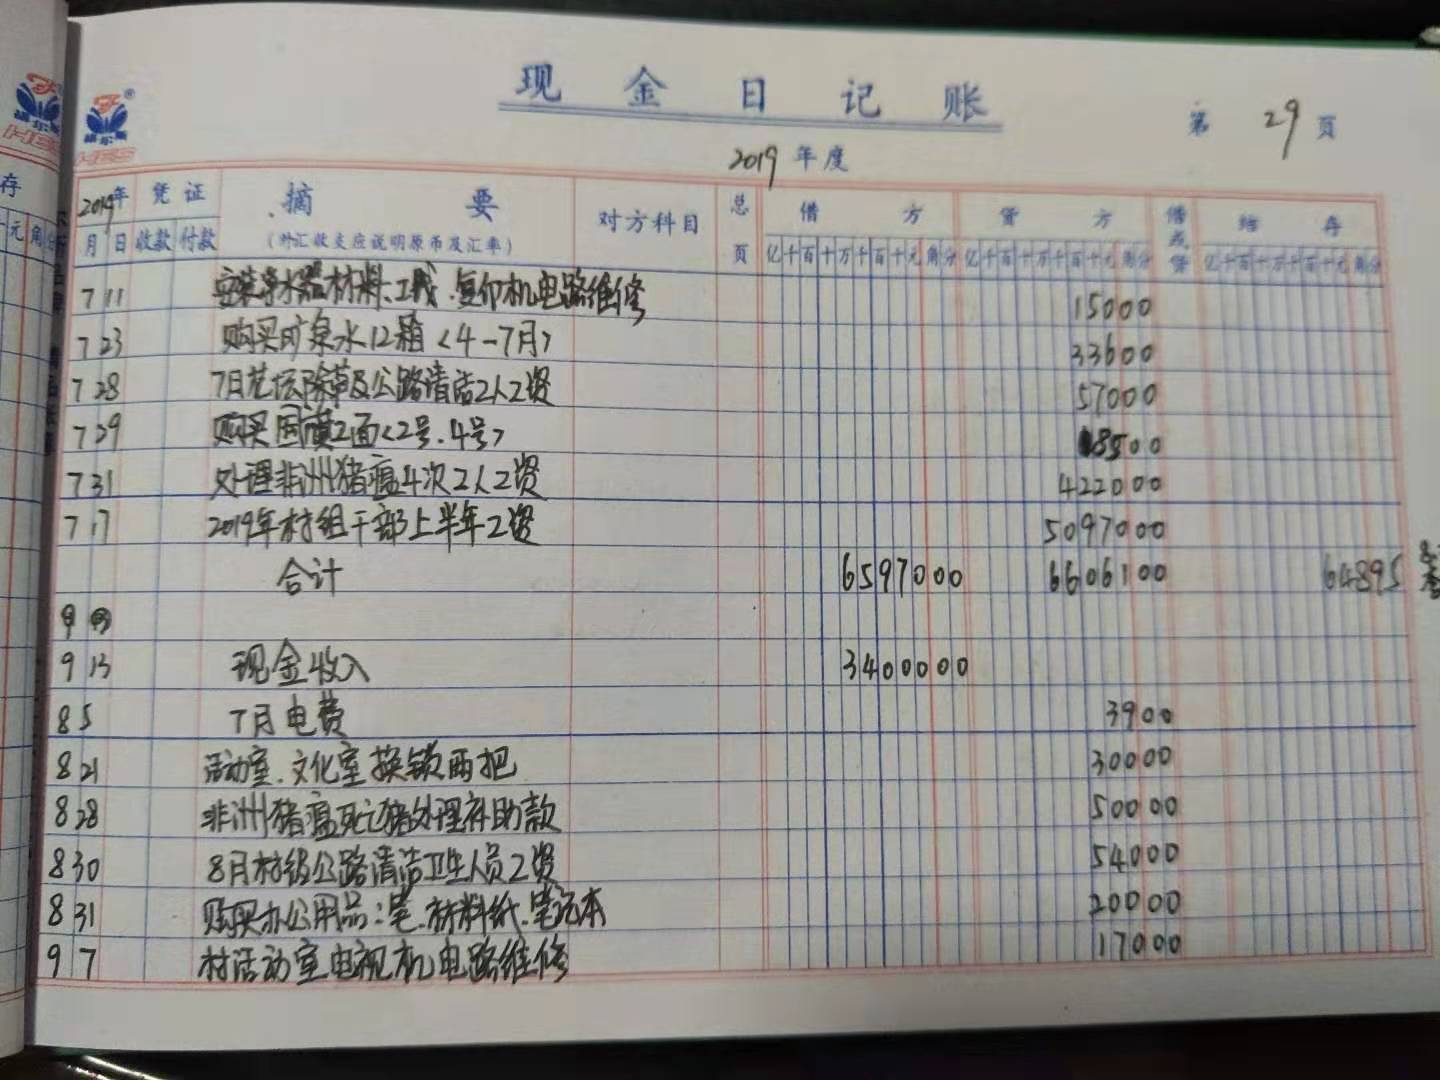 现金日记账
第 29 页
2019 年度
2019年 凭证 摘要 对方科目 总页 借方 贷方 借或贷 结存
月 日 收款 付款 (外汇收支应说明原币及汇率) 亿千百十万千百十元角分 亿千百十万千百十元角分 亿千百十万千百十元角分
7 11 安装净水器材料、工钱、复印机电路维修 15000
7 23 购买矿泉水12箱<4-7月> 33600
7 28 7日花坛除草及公路清洁2人工资 57000
7 29 购买国旗2面<2号、4号> 8500
7 31 处理非洲猪瘟4次2人工资 422000
7 17 2019年村组干部上半年工资 5097000
合计 6597000 6606100 64895
9
9 13 现金收入 3400000
8 5 7月电费 3900
8 21 活动室、文化室换锁两把 30000
8 28 非洲猪瘟死亡猪处理补助款 50000
8 30 8月村级公路清洁卫生人员工资 54000
8 31 购买办公用品：笔、材料纸、笔记本 20000
9 7 村活动室电视机电路维修 17000
存
元角分
胡尔斯
HES